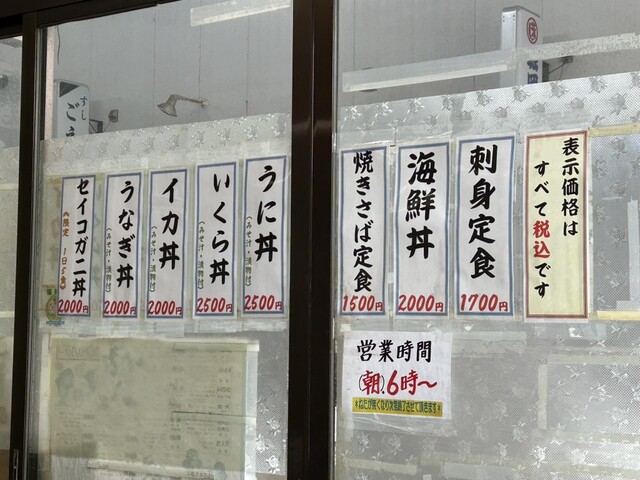 表示価格は
すべて税込です
刺身定食
1700円
海鮮丼
2000円
焼きさば定食
1500円
うに丼
(みそ汁・漬物付)
2500円
いくら丼
(みそ汁・漬物付)
2500円
イカ丼
(みそ汁・漬物付)
2000円
うなぎ丼
(みそ汁・漬物付)
2000円
セイコガニ丼
限定 1日5食
2000円
営業時間
(朝)6時〜
*ねたが無くなり次第終了させて頂きます*
すし